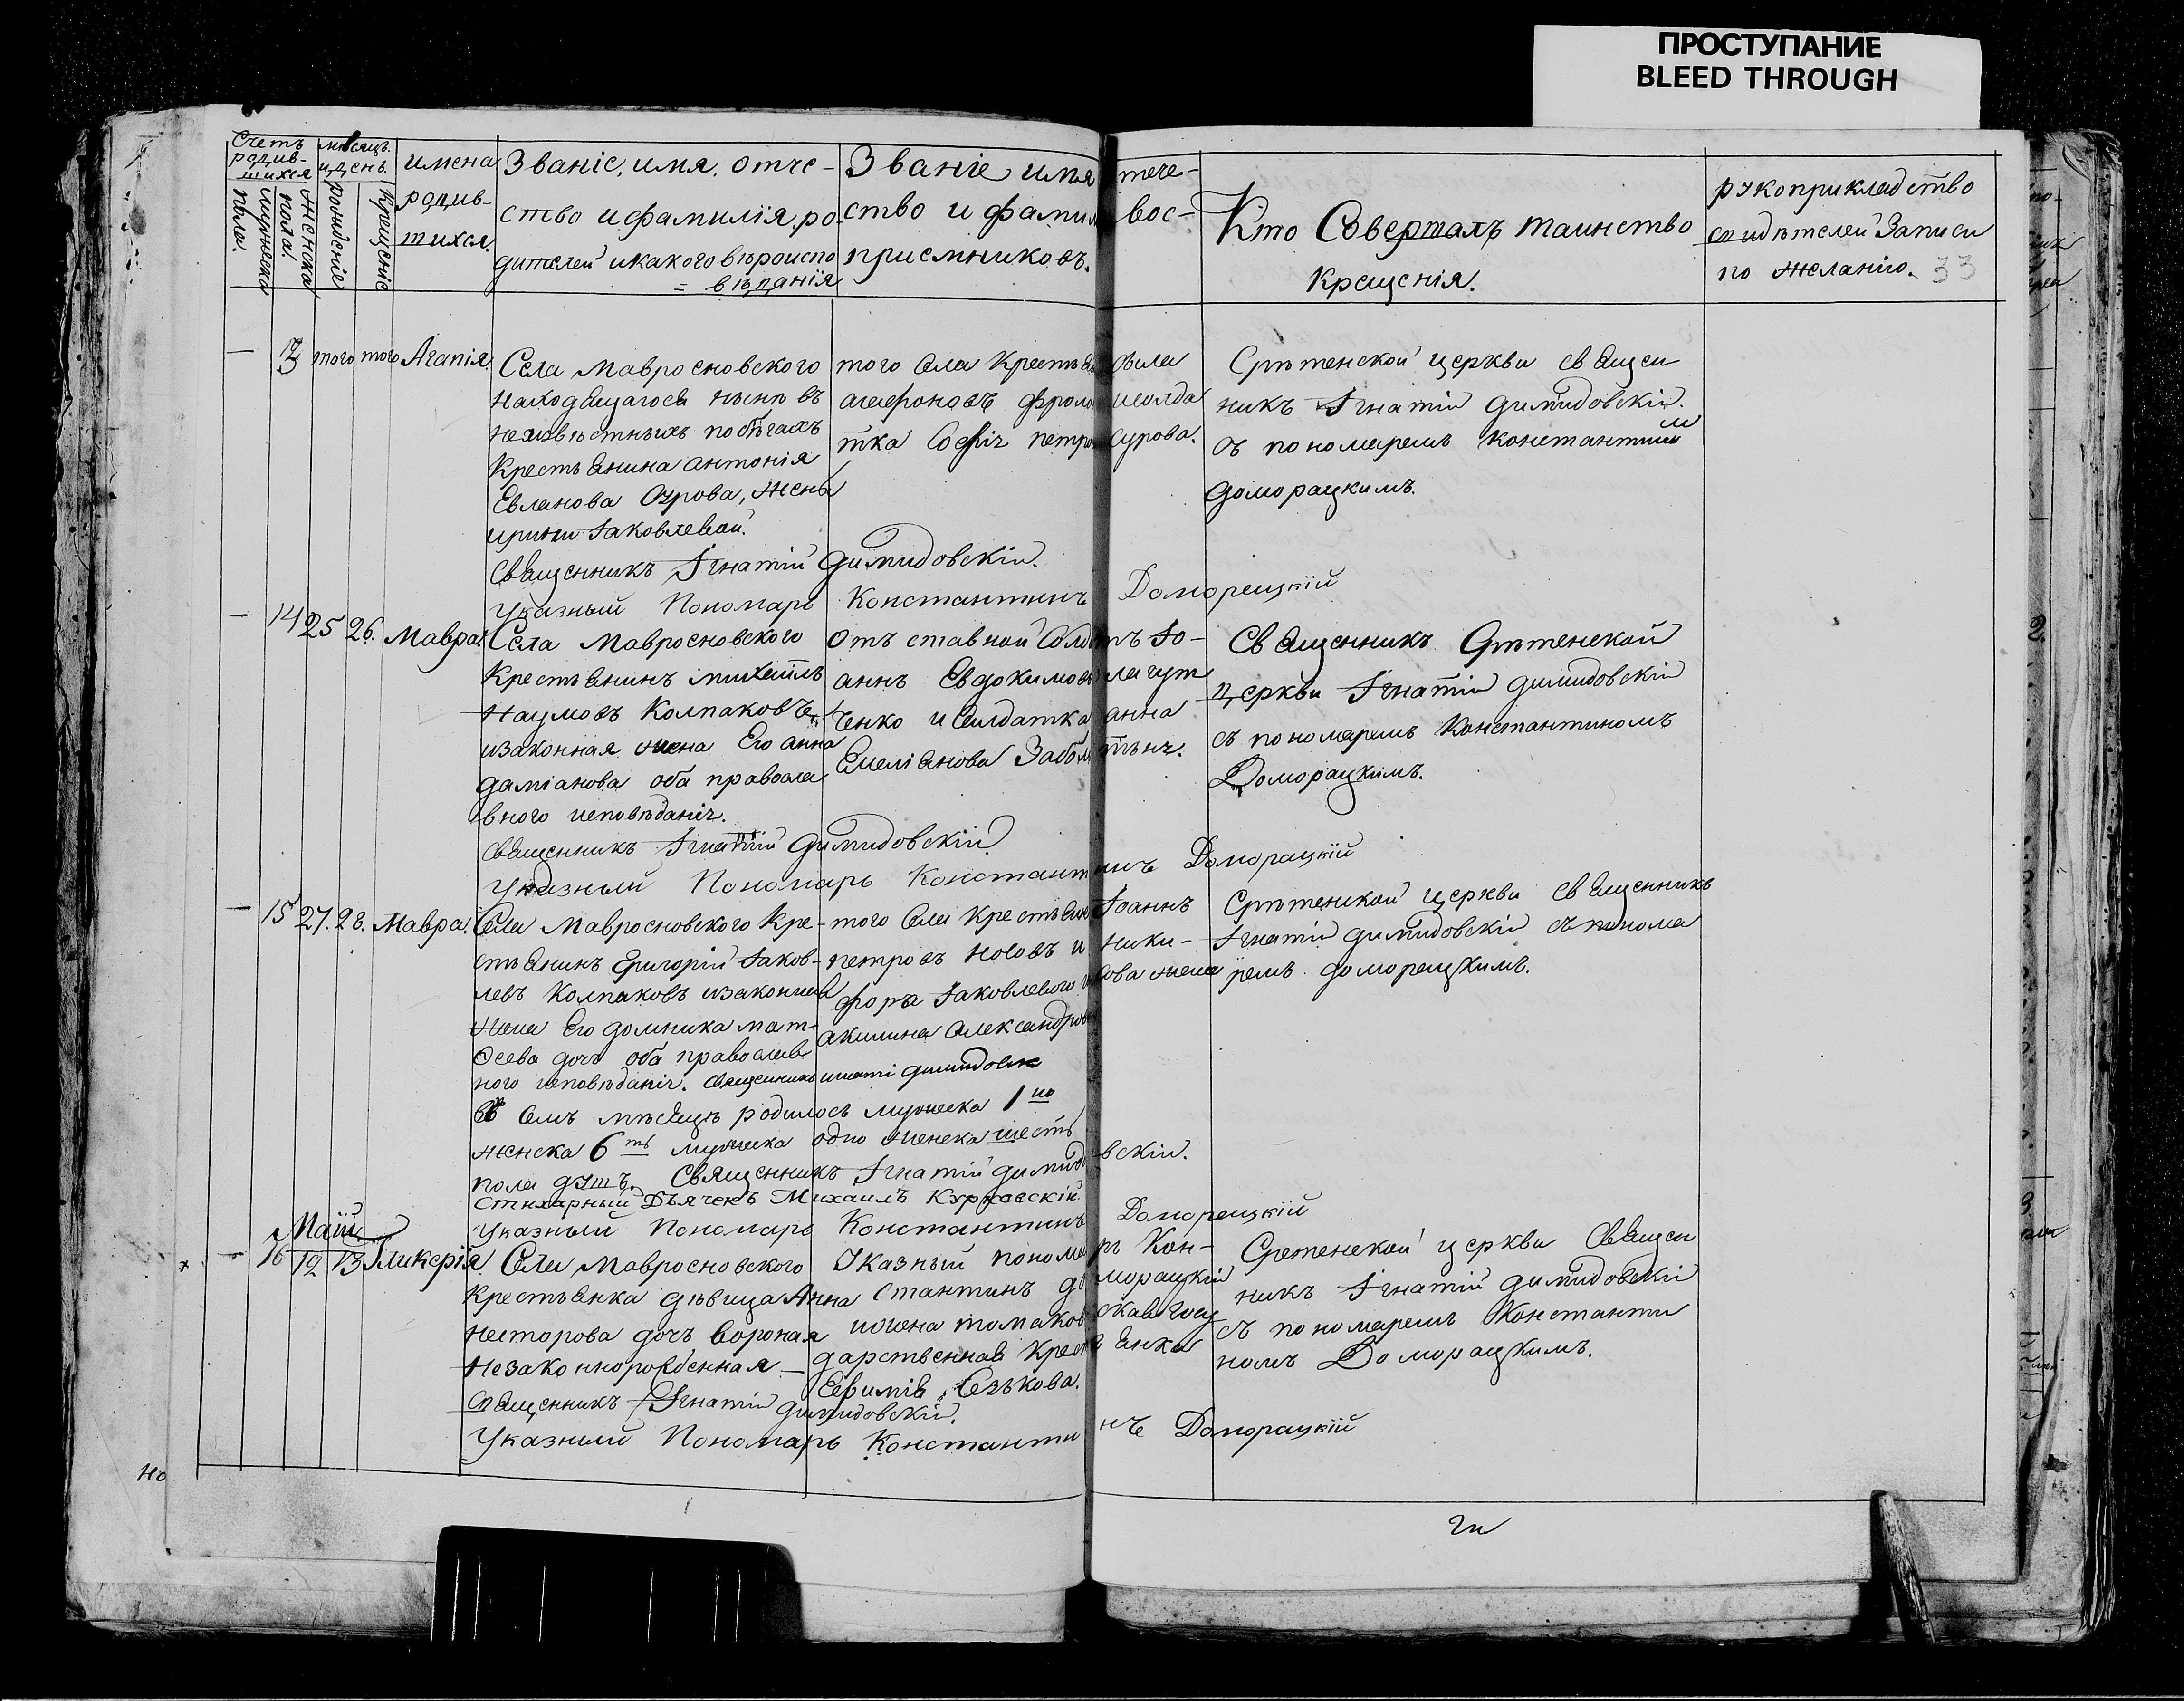 ПРОСТУПАНИЕ
BLEED THROUGH
Счетъ родив-шихся
мѣсяцъ и день.
имена родив-шихся.
Званіе, имя, отче-
ство и фамилія, ро
дителей и какого вѣроиспо
= вѣданія
Званіе имя отече-
ство и фамил вос-
приемниковъ.
Кто Совершалъ таинство
Крещенія.
рукоприкладство
свидѣтелей Записи
по желанію. 33
мужеска пола.
женска пола.
рожденіе
крещеніе
— 13 того того Агапія.
Села Мавросновского
находящагося нынѣ въ
неизвѣстныхъ побѣгахъ
Крестьянина антонія
Евланова Озрова, жены
ирини Іаковлевой.
того села Крестьян
фроло исолда
тка Софія петро сурова.
Срѣтенской церкви священ
никъ Ігнатій димидовскій.
съ пономаремъ константином
доморацкимъ.
Священникъ Ігнатій димидовскій.
Указный Пономарь Константинъ Доморецкій
— 14 25 26. Мавра.
Села Мавросновского
Крестьянинъ михаилъ
Наумовъ Колпаковъ,
изаконная жена Его анна
даміанова оба правосла
вного исповѣданія.
Отъ ставной Солдатъ Іо-
аннъ Евдокимовъ лагут
енко и Солдатка анна
Емеліянова
Священникъ Срѣтенской
церкви Ігнатій димидовскій
съ пономаремъ Константиномъ
Доморацкимъ.
Священникъ Ігнатій димидовскій
Указный Пономарь Константинъ Доморацкій
— 15 27. 28. Мавра.
Села Мавросновского Кре-
стьянинъ Григорій Іаков-
левъ Колпаковъ изаконная
жена Его домника мат-
ѳеева дочь оба православ
ного исповѣданія. Священникъ игнаті димидовск
того села Крестьян Іоаннъ
петровъ Носовъ и ники-
фора Іаковлевого сова жена
акилина Александров
Срѣтенской церкви священникъ
Ігнатій димидовскій съ понома
ремъ доморецкимъ.
Въ Семъ мѣсяцѣ родилось мужеска 1 но
женска 6 ть мужеска одно женска шесть
пола душъ. Священникъ Ігнатій димидовскій.
Стихарный Дьячекъ Михаилъ
Указный Пономарь Константинъ Доморецкій
Маій
— 16 12 13 Гликерія
Села Мавросновского
Крестьянка дѣвица Анна
несторова дочь Вороная
Незаконнорожденная —
Указный пономарь Кон-
стантинъ доморацкій
ижена томаков скаго госу
дарственная Крестьянка
Евфимія Сезькова.
Сретенской церкви Священ
никъ Ігнатій димидовскій
съ пономаремъ Константи
номъ Доморацкимъ.
Священникъ Ігнатій димидовскій.
Указный Пономарь Константинъ Доморацкій